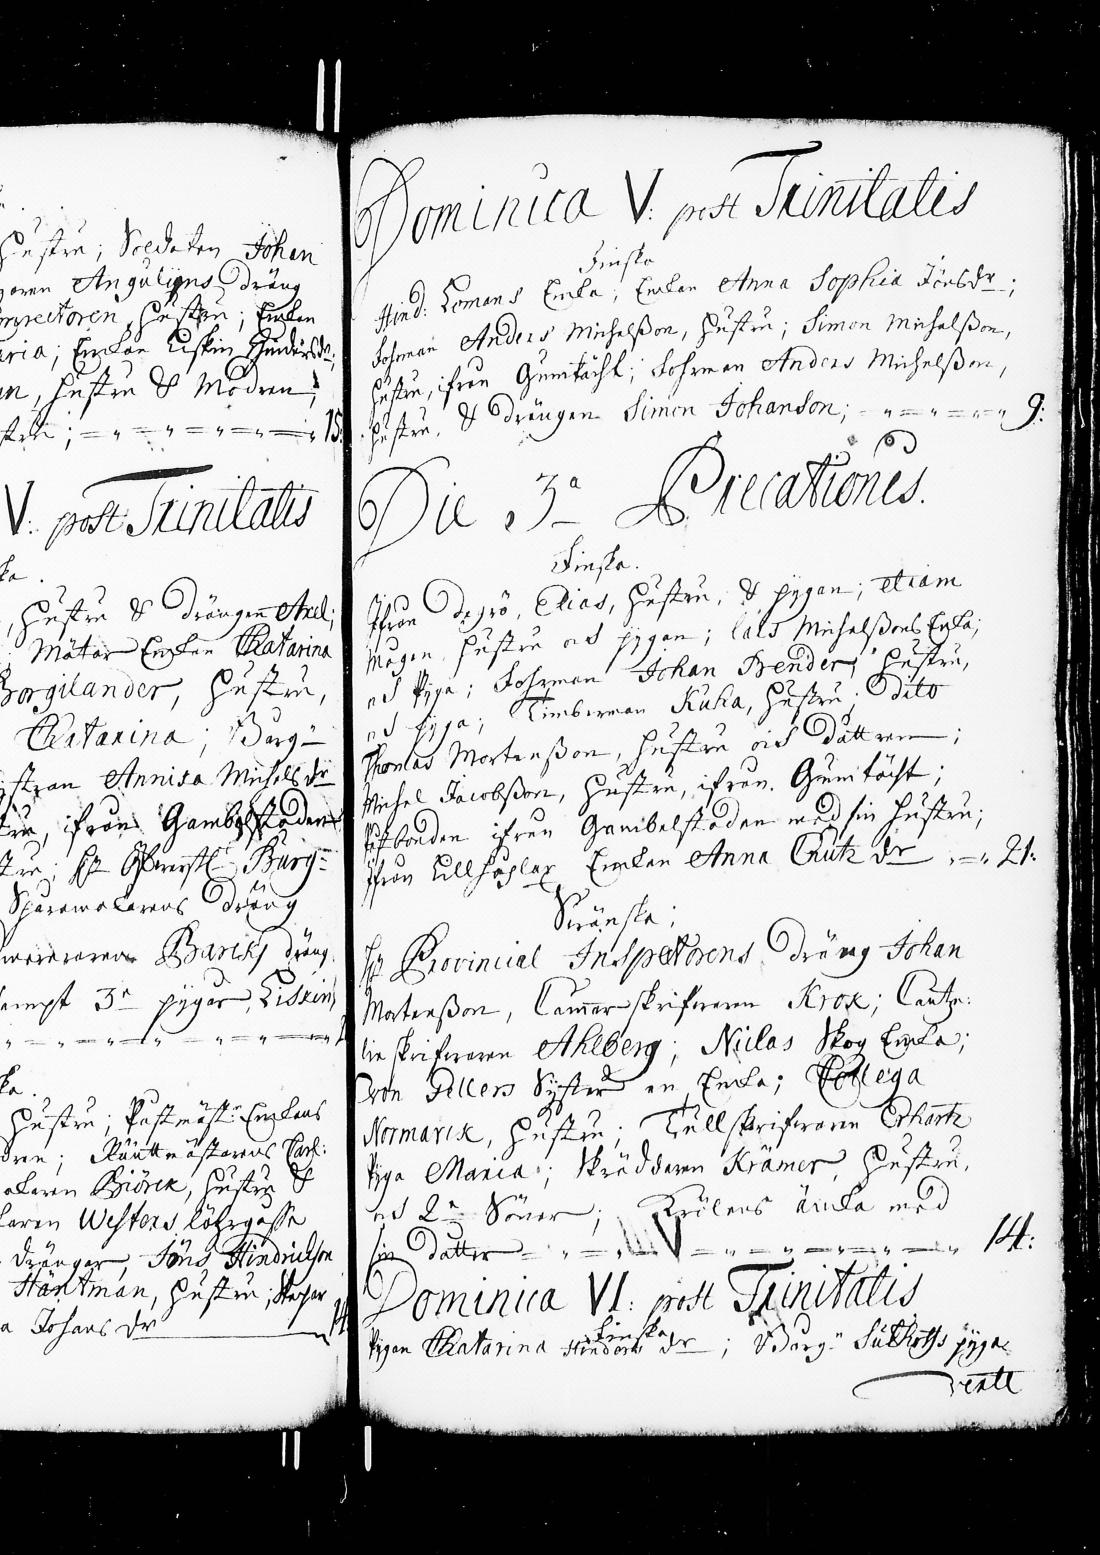 hustru; Soldaten Johan
Angulijns dräng
inspectoren, hustru; Enkan
aria; Enkan Liskin Hindersdr;
an, hustru & Modren;
stru; = „ = „ = „ = „ 15:
V: post Trinitatis
ka.
, hustru & drängen Axel;
Mätar Enkan Chatarina
Borgilander, hustru,
Chatarina; Borg=
Annisa Michels dr
stru, ifrån Gambelstaden
stru; Hr Öfwerstl Burg=
dräng
Barckj dräng
sampt 3n pygar, Liskin,
„ = „ = „ = „ =
ka.
hustru; Postmäst: Enkans
dren; Räntmästarens Carl:
akaren Biörck, hustru &
karen Westers
drängar, Jöns Hindrichson
Häntman, hustru;
a Johans dr 14
Dominica V: post Trinitatis
Finska
Hind: Lomans Enka; Enkan Anna Sophia Jönsdr;
Fohrman Anders Michelßon, hustru; Simon Michelßon,
hustru, ifrån Gumtächt; Fohrman Anders Michelßon,
hustru, & drängen Simon Johanson; = „ = „ = „ 9:
Die 3a Precationes.
Finska.
Ifrån Degrö, Elias, hustru, & pygan; etiam
Mågen, hustru och pygan; Lars Michelßons Enka;
och Pyga; Fohrman Johan Brender, hustru,
och pyga; Timberman Kuka, hustru; dito
Thomas Mortenßon, hustru och dåttren;
Michel Jacobßon, hustru, ifrån Gumtächt;
ifrån Gambelstaden med sin hustru;
Ifrån Lillhoplax Enkan Anna Chutz dr „ = „ 21:
Swänska;
Hr Provincial Inspectorens dräng Johan
Mortenßon, Cammerskrifwaren Krox; Cantze:
lie skrifwaren Ahlberg; Niclas Skog Enka;
von Gellers Syster en Enka; Collega
Normarck, hustru; Tullskrifwaren Erhartz
Pyga Maria; Skräddaren Krämer, hustru,
och 2n Söner; änka med
sin dotter = „ = „ = „ = „ = „ 14:
Dominica VI: post Trinitatis
Finska
Pygan Chatarina Hinders dr; Borg: pyga
verte